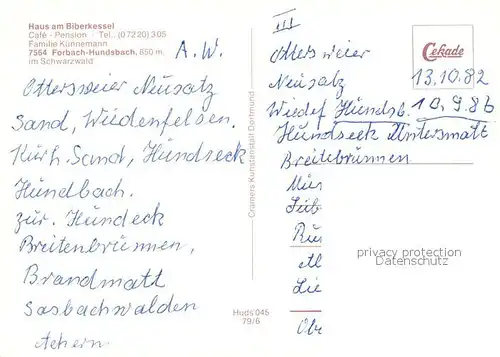 Haus am Biberkessel
Café - Pension · Tel.: (07220) 305
Familie Künnemann
7564 Forbach-Hundsbach, 850 m.
im Schwarzwald
A.W.
Ottersweier Neusatz
Sand, Wiedenfelsen.
Kurh. Sand, Hundseck
Hundbach.
zur. Hundeck
Breitenbrunnen,
Brandmatt
Sasbachwalden
Achern
Cramers Kunstanstalt Dortmund
Huds 045
79/6
III
Ottersweier
Neusatz
Wiedef Hundsb.
Hundseck Untersmatt
Breitebrunnen
Cekade
13.10.82
10.9.86
privacy protection
Datenschutz